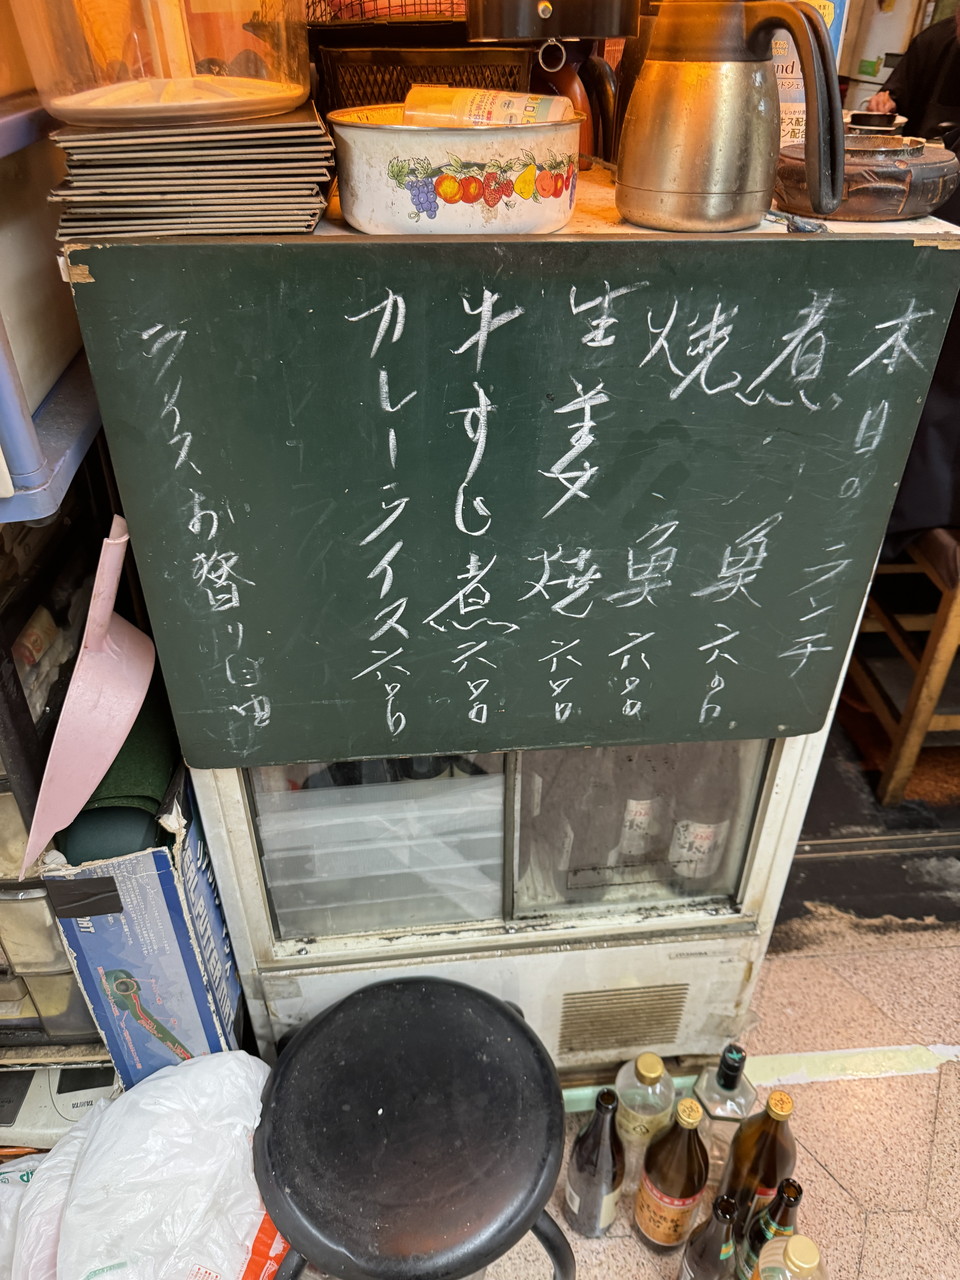 本日のランチ
煮魚 六〇〇
焼魚 六〇〇
生姜焼 六〇〇
牛すじ煮 六〇〇
カレーライス 六〇〇
ライスお替り自由